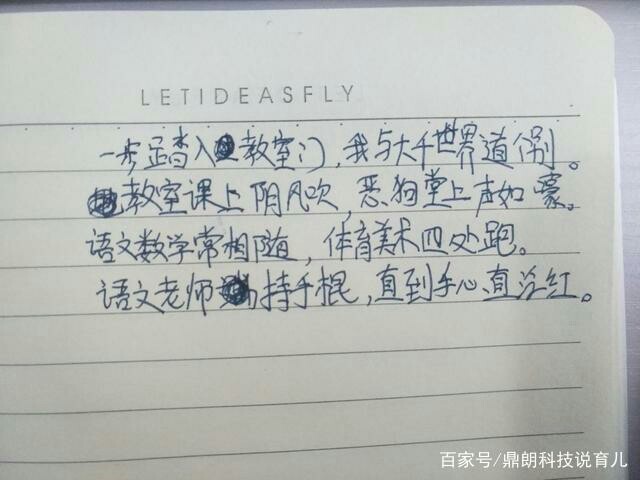 LETIDEASFLY
一步踏入教室门,我与大千世界道别。
教室课上阴风吹,恶狗堂上声如雷。
语文数学常相随,体育美术四处跑。
语文老师持手棍,直到手心直泛红。
百家号/鼎朗科技说育儿